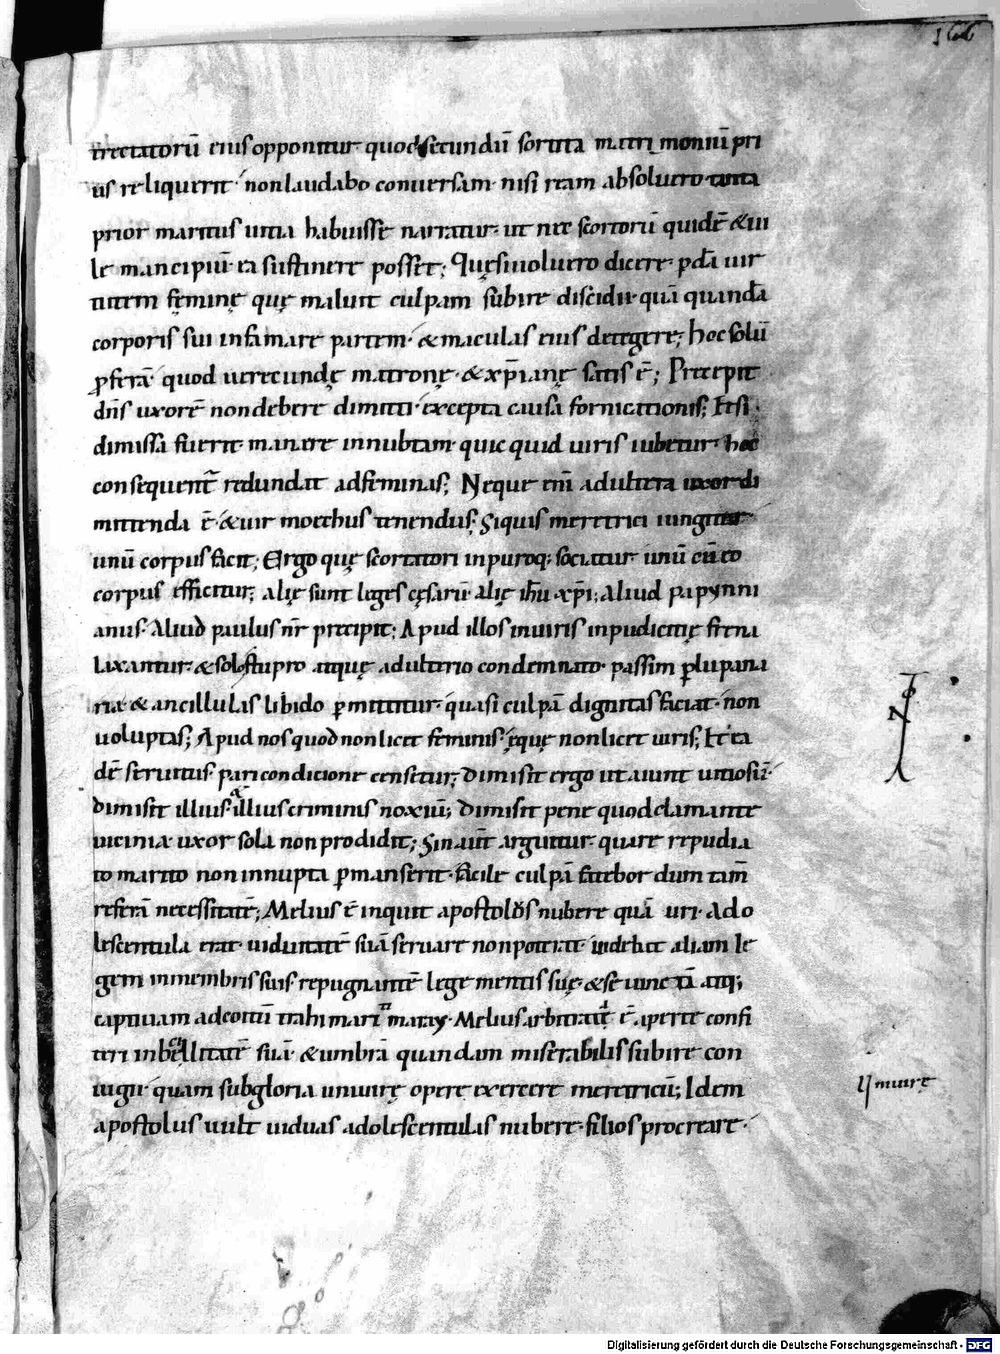 166
trectatorū eius opponitur quod secundū sortita matrimoniū pri
us reliquerit· non laudabo conversam· nisi ream absoluero· tanta
prior maritus vitia habuisse narratur· ut nec scortorū quidē & vi
le mancipiū ea sustinere posset; Quę si voluero dicere· ꝑdā vir
tutem fęminę quę maluit culpam subire discidii· quā quandā
corporis sui infamare partem· & maculas eius detegere; hoc solū
ꝓferā quod verecundę matronę· & xp̄ianę satis ē; Precepit
dn̄s uxorē non debere dimitti· excepta causa fornicationis; Et si
dimissa fuerit· manere innubtam· quic quid viris iubetur· hoc
consequent̄ redundat ad feminas; Neque eni̅ adultera uxor di
mittenda ē· & vir moechus tenendus; Si quis meretrici iungitur
unū corpus facit; Ergo quę scortatori inpuroq; sociatur· unū cū eo
corpus efficitur; alię sunt leges cęsarū· alię ih̄u xp̄i; Aliud papynni
anus· Aliud paulus nr̄ precipit; Apud illos in viris inpudicitię frena
laxantur· & solo stupro atquę adulterio condemnato· passim ꝑ lupana
ria & ancillulas libido ꝑmittitur· quasi culpā dignitas faciat· non
voluptas; Apud nos quod non licet feminis· ęquę non licet viris; Et ea
dē servitus pari condicione censetur; Dimisit ergo ut aiunt vitiosū·
dimisit illius & illius criminis noxiū; Dimisit pene quod clamante
vicinia uxor sola non prodidit; Sin aut̄ arguitur quare repudia
to marito non innupta ꝑmanserit· facile culpā fatebor dum tam̄
referā necessitatē; Melius ē inquit apostolus nubere quā uri· Ado
lescentula erat· viduitatē suā servare non poterat· videbat aliam le
gem in membris suis repugnantē lege mentis suę· & se vinctā atq;
captivam ad coitū trahi
Melius arbitrata ē aperte confi
teri inbecillitatē suā· & umbrā quandam miserabilis subire con
iugii· quam sub gloria univirę opere exercere meretriciū; Idem
univire
apostolus vult viduas adolescentulas nubere· filios procreare·
Digitalisierung gefördert durch die Deutsche Forschungsgemeinschaft - DFG